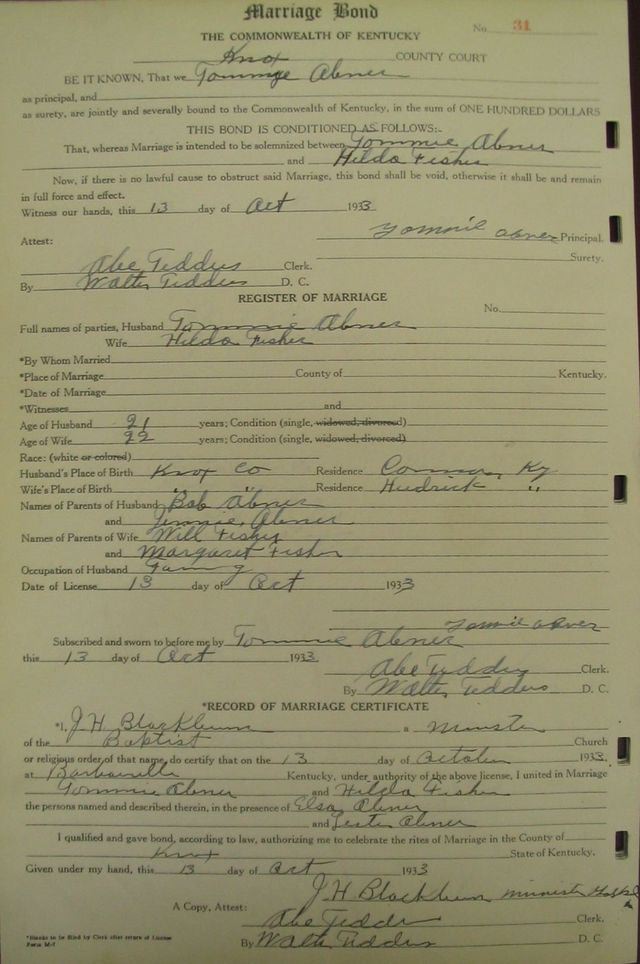 Marriage Bond
No. 31
THE COMMONWEALTH OF KENTUCKY
Knox COUNTY COURT
BE IT KNOWN, That we Tommye Abner
as principal, and
as surety, are jointly and severally bound to the Commonwealth of Kentucky, in the sum of ONE HUNDRED DOLLARS
THIS BOND IS CONDITIONED AS FOLLOWS:-
That, whereas Marriage is intended to be solemnized between Tommie Abner
and Hilda Fisher
Now, if there is no lawful cause to obstruct said Marriage, this bond shall be void, otherwise it shall be and remain
in full force and effect.
Witness our hands, this 13 day of Oct 1933
Tommie abner Principal.
Attest:
Surety.
Abe Teddus Clerk.
By Walter Teddus D. C.
REGISTER OF MARRIAGE
No.
Full names of parties, Husband Tommie Abner
Wife Hilda Fisher
*By Whom Married
*Place of Marriage County of Kentucky.
*Date of Marriage
*Witnesses and
Age of Husband 21 years; Condition (single, widowed, divorced)
Age of Wife 22 years; Condition (single, widowed, divorced)
Race: (white or colored)
Husband's Place of Birth Knox Co Residence Ky
Wife's Place of Birth " " Residence Hedrick "
Names of Parents of Husband Bob Abner
and Jennie Abner
Names of Parents of Wife Will Fisher
and Margaret Fisher
Occupation of Husband
Date of License 13 day of Oct 1933
Tommie abner
Subscribed and sworn to before me by Tommie Abner
this 13 day of Oct 1933
Abe Teddus Clerk.
By Walter Teddus D. C.
*RECORD OF MARRIAGE CERTIFICATE
*I, J H Blackburn a Minister
of the Baptist Church
or religious order of that name, do certify that on the 13 day of October 1933.
at Barbourville Kentucky, under authority of the above license, I united in Marriage
Tommie Abner and Hilda Fisher
the persons named and described therein, in the presence of Elsa Abner
and Lester Abner
I qualified and gave bond, according to law, authorizing me to celebrate the rites of Marriage in the County of
Knox State of Kentucky.
Given under my hand, this 13 day of Oct 1933
J H Blackburn minister
A Copy, Attest:
Abe Teddus Clerk.
By Walter Teddus D. C.
*Blanks to be filed by Clerk after return of License
Form M-1